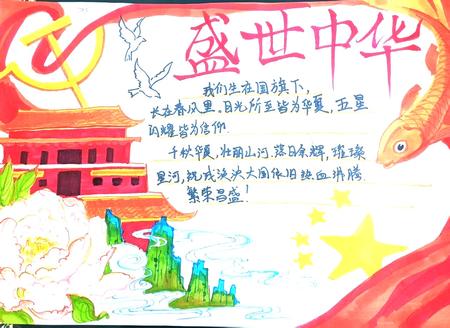 盛世中华
我们生在国旗下,
长在春风里。目光所至皆为华夏,五星
闪耀皆为信仰.
千秋华夏,壮丽山河.落日余辉,璀璨
星河,祝我泱泱大国依旧热血沸腾
繁荣昌盛!